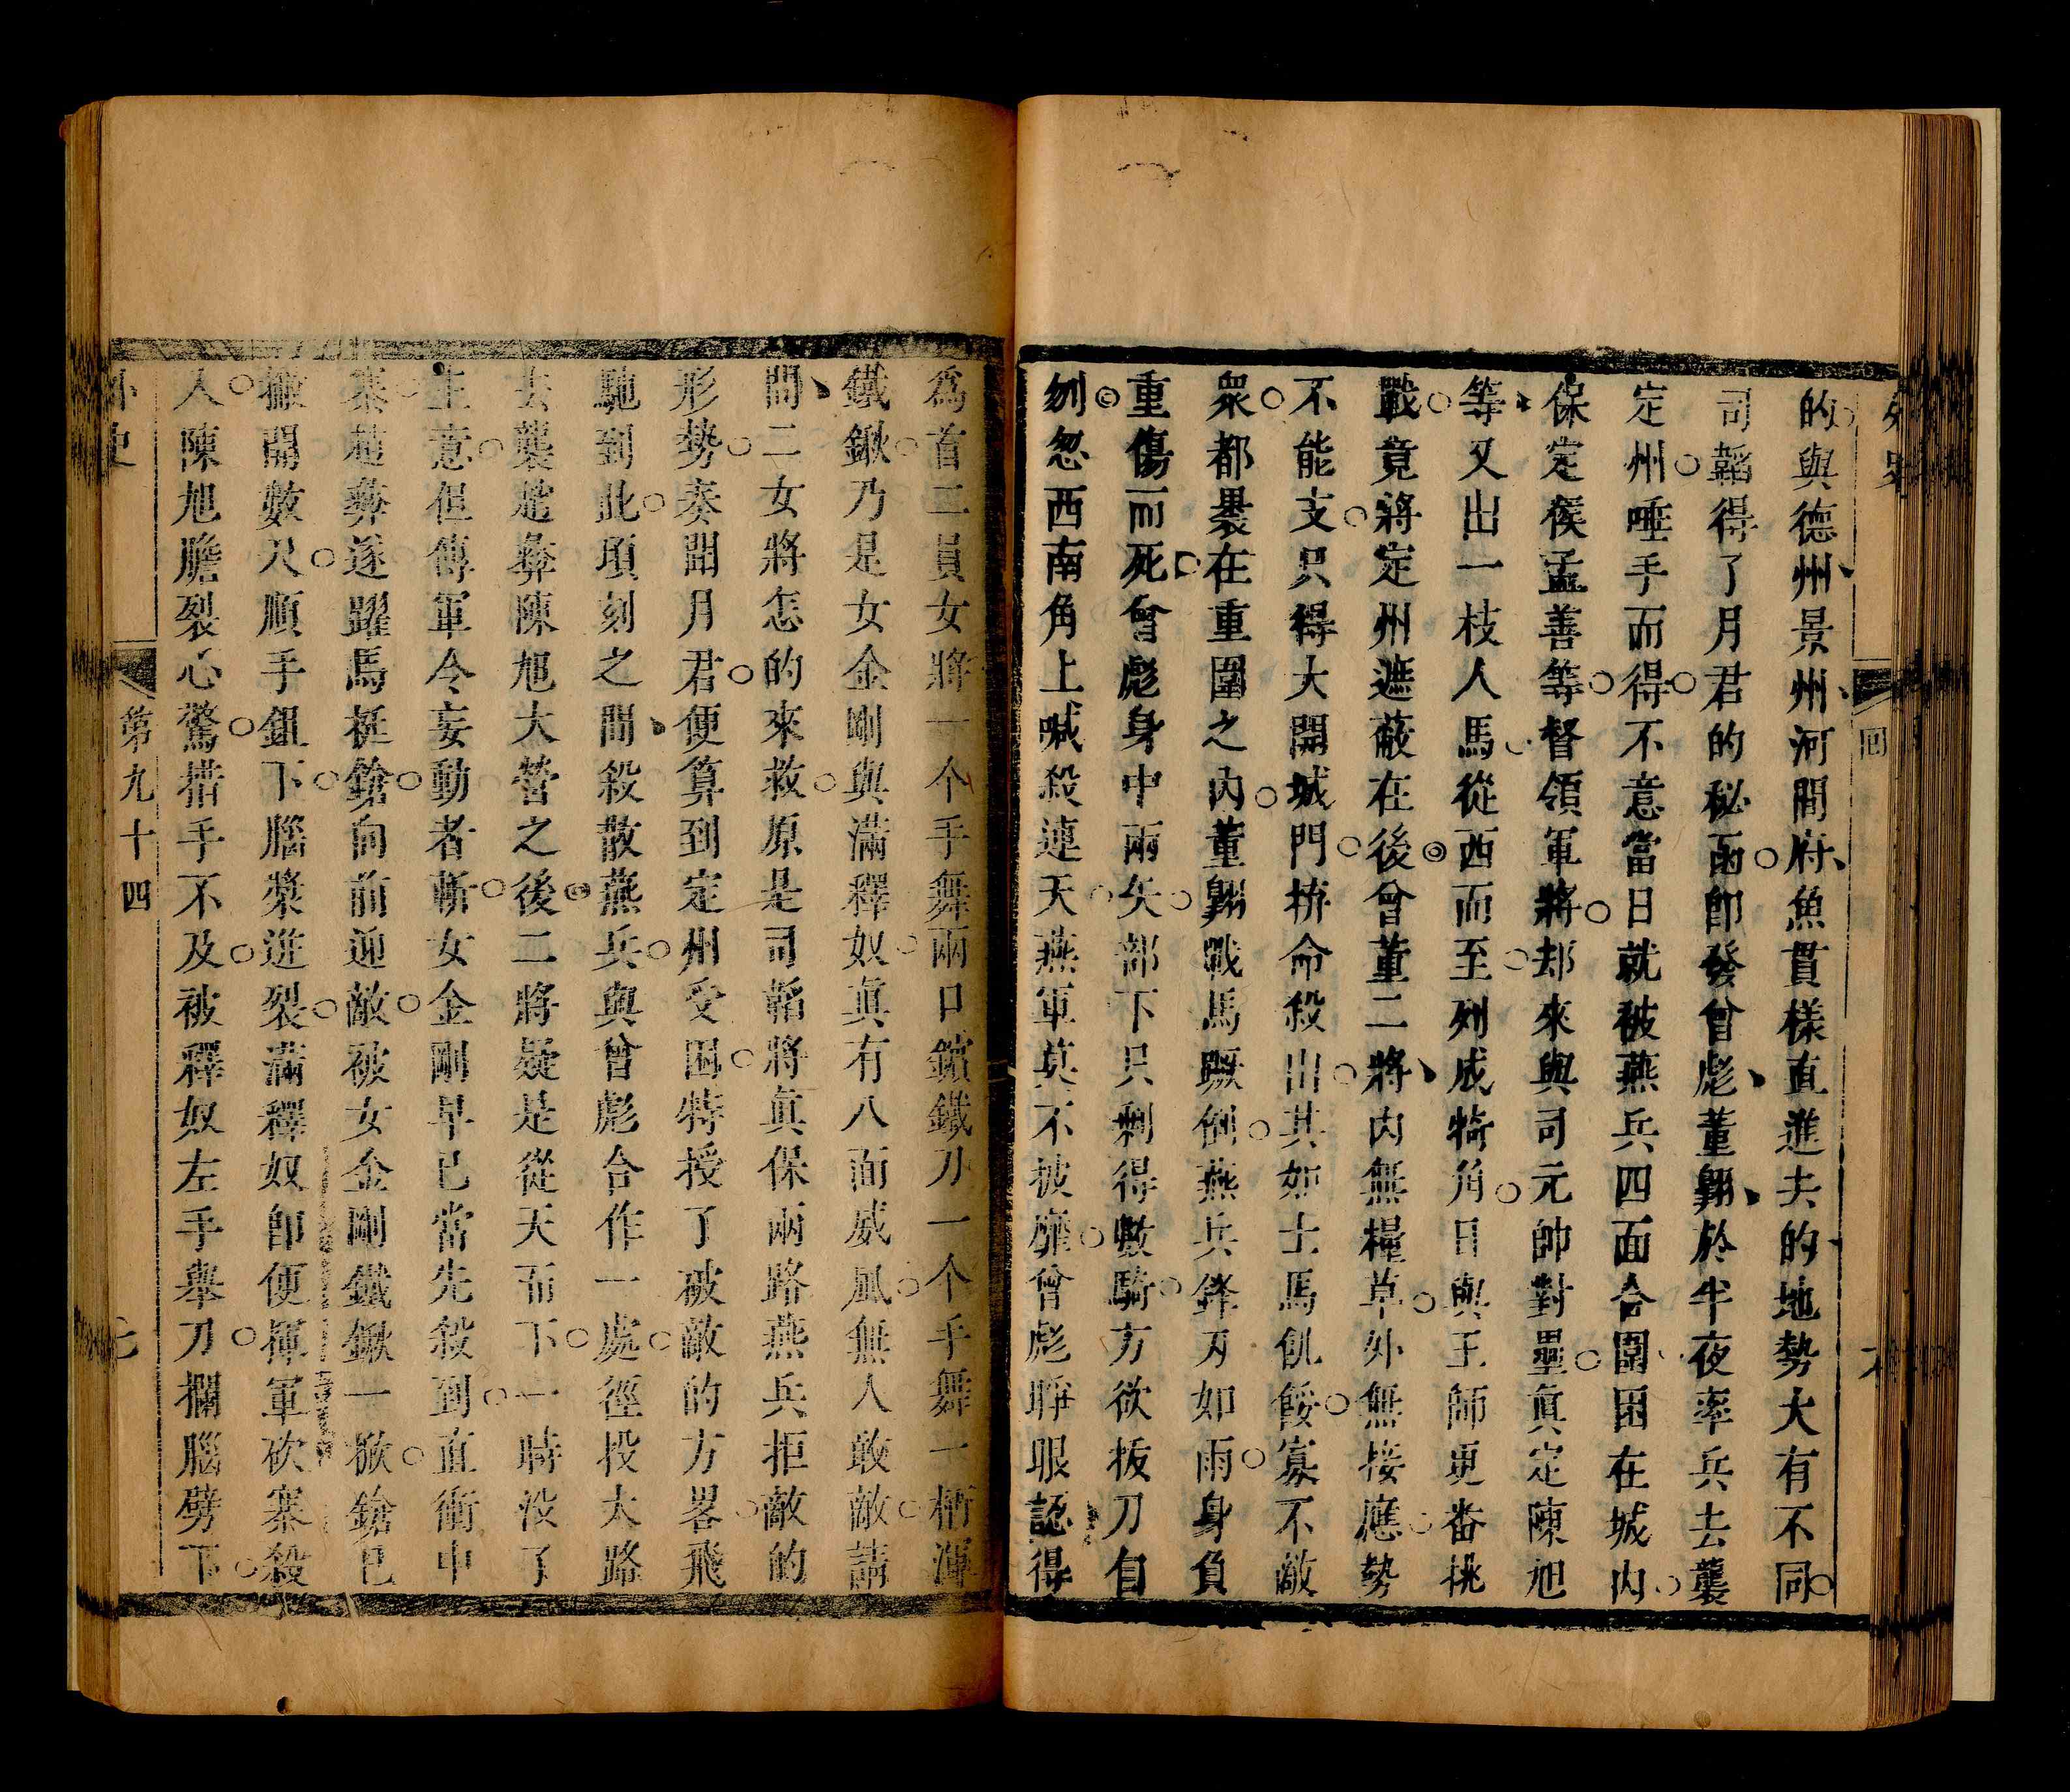 的與德州景州河間府魚貫樣直進去的地勢大有不同
司韜得了月君的秘函卽發曾彪董翱於半夜率兵去襲
定州唾手而得不意當日就被燕兵四面合圍困在城內
保定侯孟善等督領軍將却來與司元帥對壘眞定陳旭
等又出一枝人馬從西而至列成犄角日與王師更番挑
戰竟將定州遮蔽在後曾董二將內無糧草外無接應勢
不能支只得大開城門拚命殺出其如士馬飢餒寡不敵
衆都裹在重圍之內董翱戰馬蹶倒燕兵鋒刃如雨身負
重傷而死曾彪身中兩矢部下只剩得數騎方欲拔刀自
刎忽西南角上喊殺連天燕軍莫不披靡曾彪睜眼認得
爲首二員女將一个手舞兩口鑌鐵刀一个手舞一柄渾
鐵鍬乃是女金剛與滿釋奴眞有八面威風無人敢敵請
問二女將怎的來救原是司韜將眞保兩路燕兵拒敵的
形勢奏聞月君便算到定州受困特授了破敵的方畧飛
馳到此頃刻之間殺散燕兵與曾彪合作一處徑投大路
去襲趙彝陳旭大營之後二將疑是從天而下一時沒了
主意但傳軍令妄動者斬女金剛早已當先殺到直衝中
寨趙彝遂躍馬挺鎗向前迎敵被女金剛鐵鍬一掀鎗已
撇開數尺順手鉏下腦漿迸裂滿釋奴卽便揮軍砍寨殺
人陳旭膽裂心驚措手不及被釋奴左手舉刀攔腦劈下
外史
第九十四
七